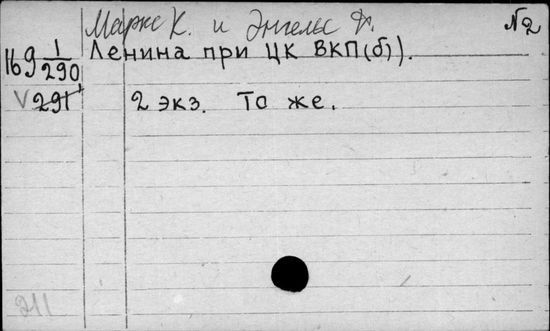 Маркс К. и Энгельс Ф. №2
169 1/290 Ленина при ЦК ВКП(б)).
V 291 2 экз. То же.
211